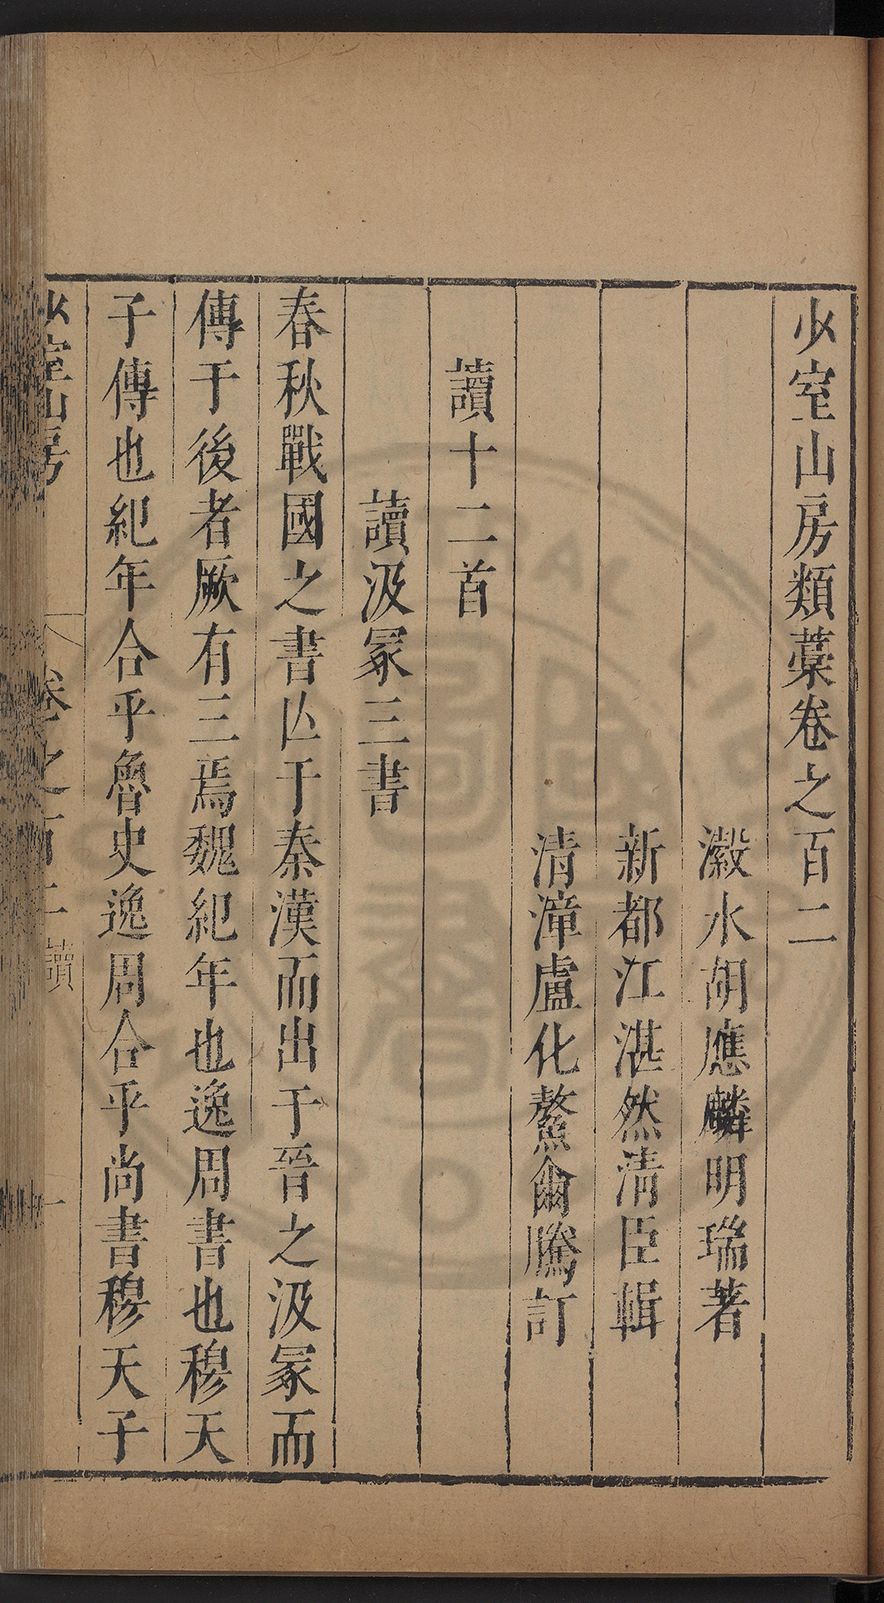 少室山房類藁卷之百二
瀫水胡應麟明瑞著
新都江湛然清臣輯
清漳盧化鰲爾騰訂
讀十二首
讀汲冢三書
春秋戰國之書亾于秦漢而出于晉之汲冢而
傳于後者厥有三焉魏紀年也逸周書也穆天
子傳也紀年合乎魯史逸周合乎尚書穆天子
少室山房
卷之百二 讀 一